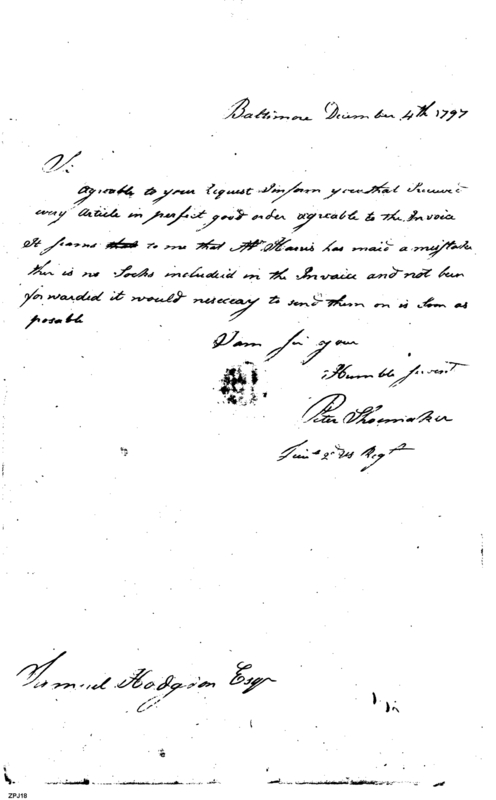 Baltimore December 4th 1797
Sir
agreable to your request I inform you that I receivd
every article in perfect good order agreable to the Invoice
It seams to me that Mr Harris has maid a mistake
ther is no Socks included in the Invoice and not ben
forwarded it would neseceay to send them on is soon as
posable
I am Sir your
Humble Servent
Peter Shoemaker
Lieut 2d US Regt
Samuel Hodgdon Esqr
ZPJ18